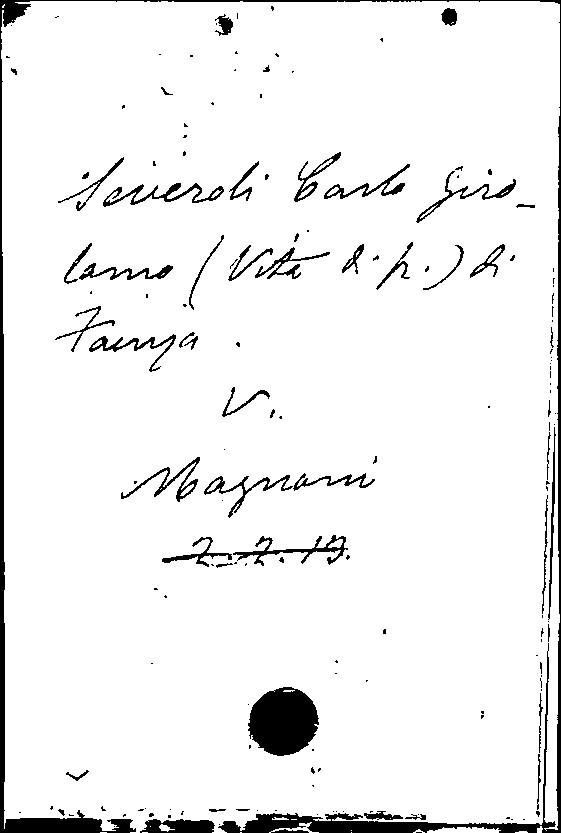 Severoli Carlo Giro-
lamo (Vita d. p.) di
Faenza.
V.
Magnani
2.2.13.